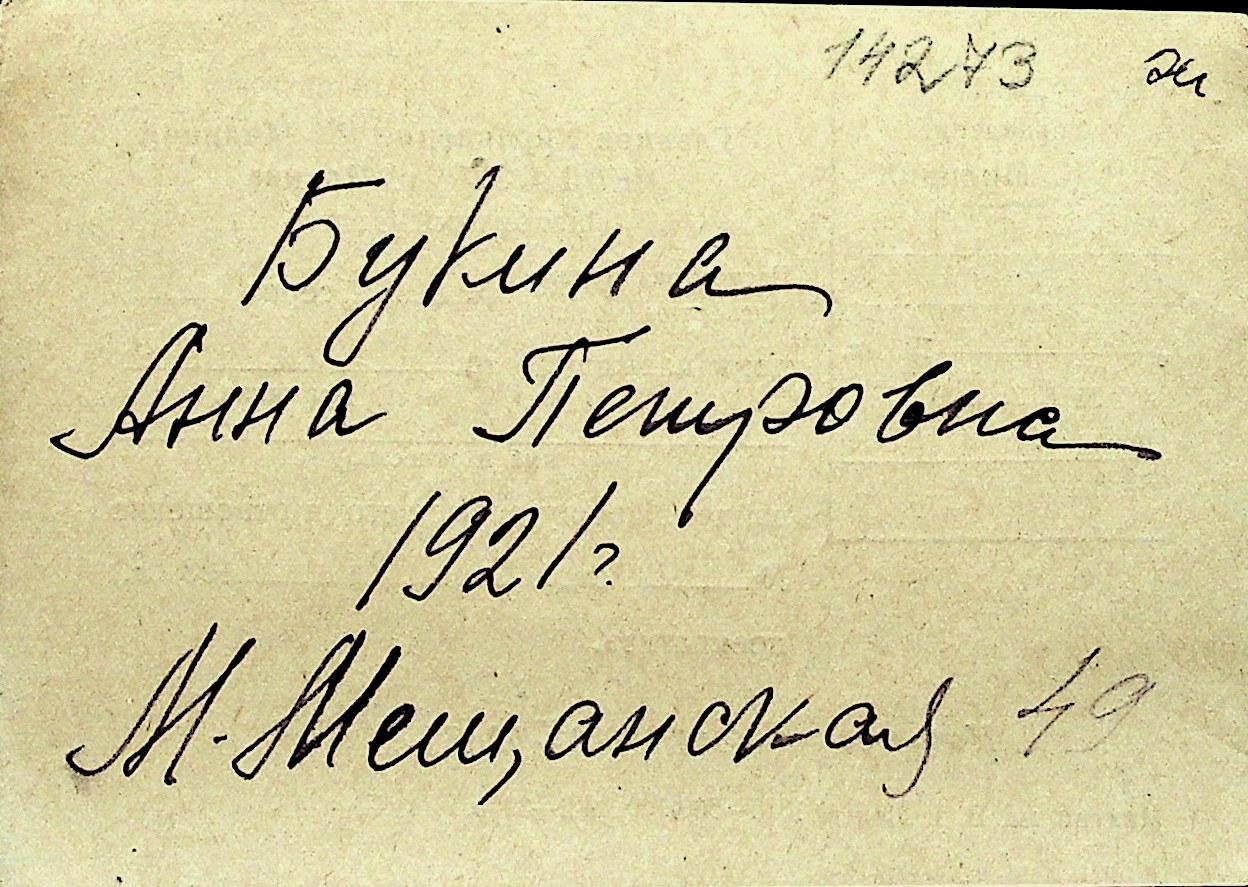 14273 ж
Букина
Анна Петровна
1921г.
М. Мещанская 49